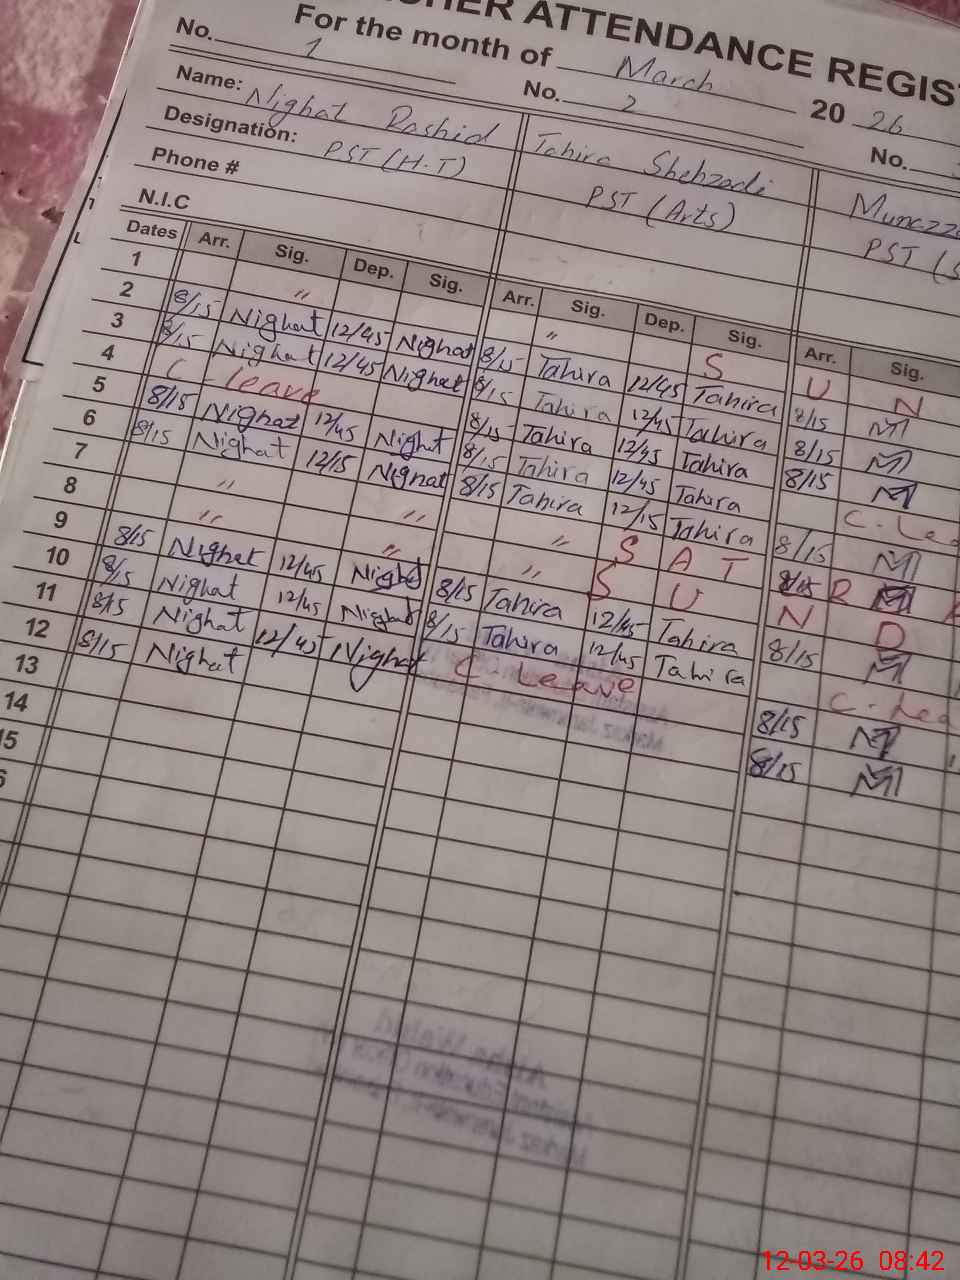 HER ATTENDANCE REGIS
For the month of March 20 26
No. 1 No. 2 No.
Name: Nighat Rashid Tahira Shehzadi Munazza
Designation: PST (H.T) PST (Arts) PST (S
Phone #
N.I.C
Dates Arr. Sig. Dep. Sig. Arr. Sig. Dep. Sig. Arr. Sig.
1 " " S U N
2 8/15 Nighat 12/45 Nighat 8/15 Tahira 12/45 Tahira 8/15 M
3 8/15 Nighat 12/45 Nighat 8/15 Tahira 12/45 Tahira 8/15 M
4 C - leave 8/15 Tahira 12/45 Tahira 8/15 M
5 8/15 Nighat 12/45 Nighat 8/15 Tahira 12/45 Tahira C - Lea
6 8/15 Nighat 12/15 Nighat 8/15 Tahira 12/15 Tahira 8/15 M
7 " " " S A T 8/15 R
8 " " " S U N D
9 8/15 Nighat 12/45 Nighat 8/15 Tahira 12/45 Tahira 8/15 M
10 8/15 Nighat 12/45 Nighat 8/15 Tahira 12/45 Tahira C - Lea
11 8/15 Nighat 12/45 Nighat C Leave 8/15 M
12 8/15 Nighat 8/15 M
13
14
15
12-03-26 08:42